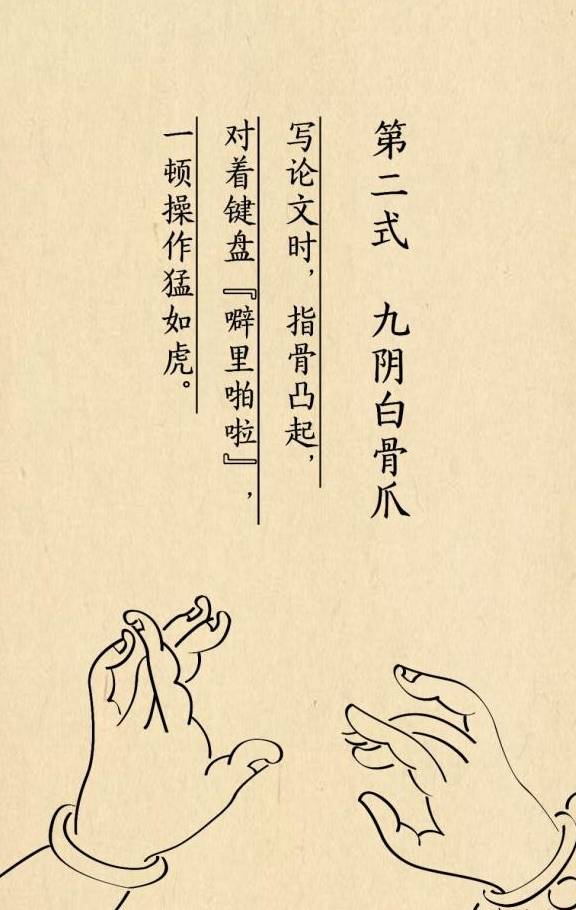 第二式 九阴白骨爪
写论文时，指骨凸起，
对着键盘『噼里啪啦』，
一顿操作猛如虎。